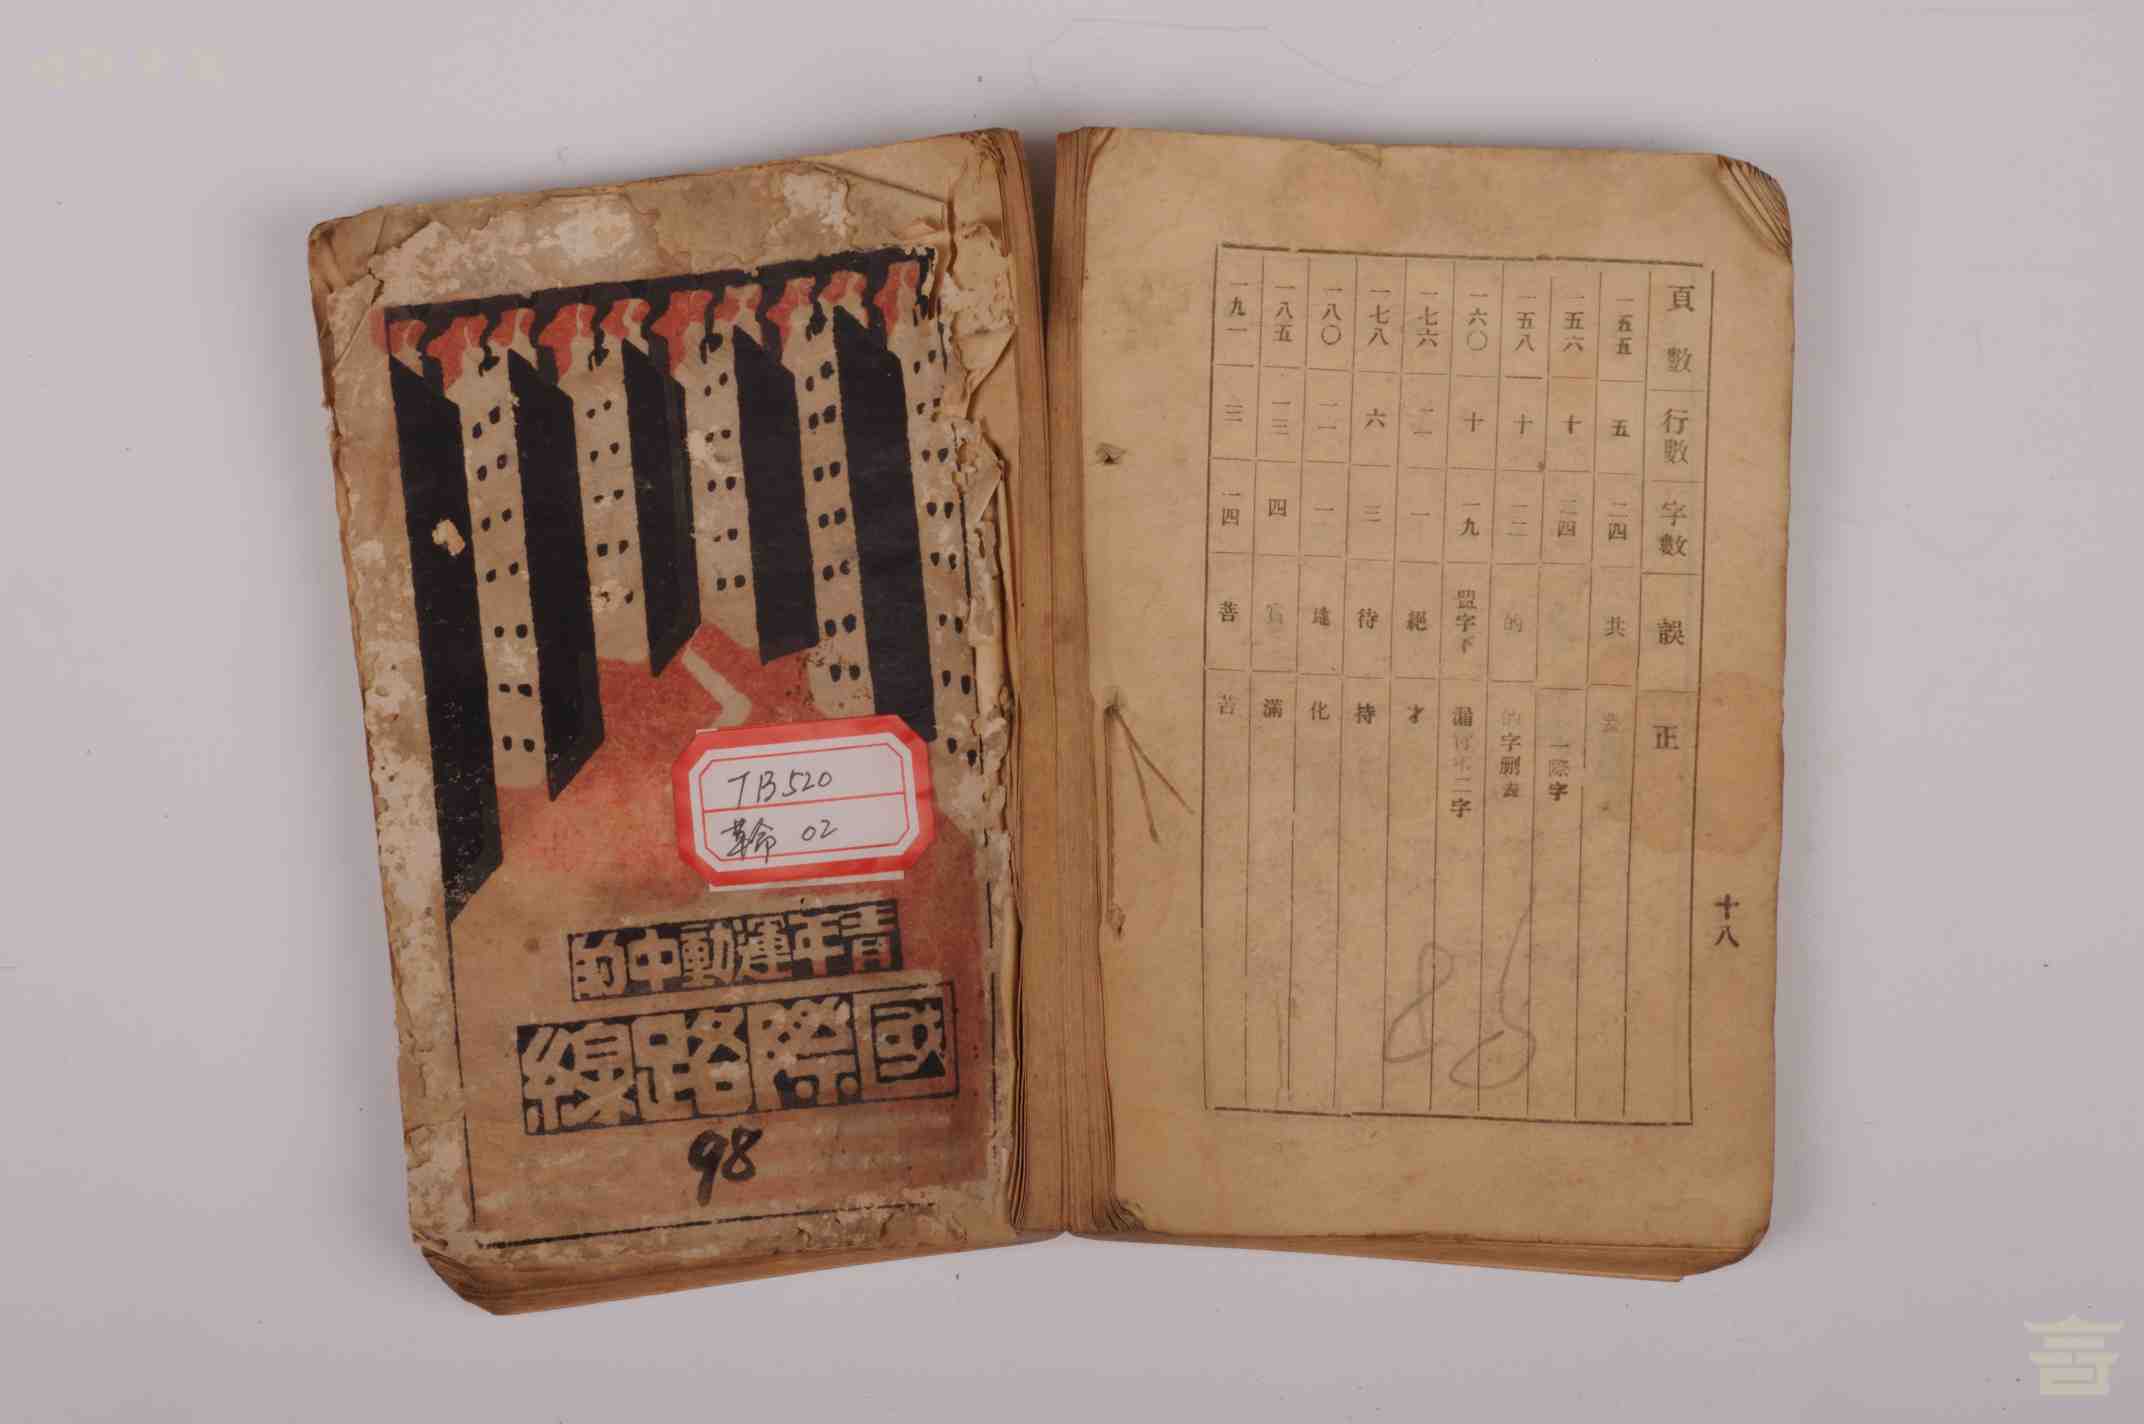 TB520
革命 02
青年運動中的
國際路線
98
頁數 行數 字數 誤 正
一五五 五 二四 共
一五六 十 二四 一際字
一五八 十 一二 的 的字刪去
一六〇 十 一九 盟字下 漏 二字
一七六 二 一 絕 才
一七八 六 三 待 持
一八〇 一一 一 達 化
一八五 一三 四 滿
一九一 三 一四 菩 苦
十八
85